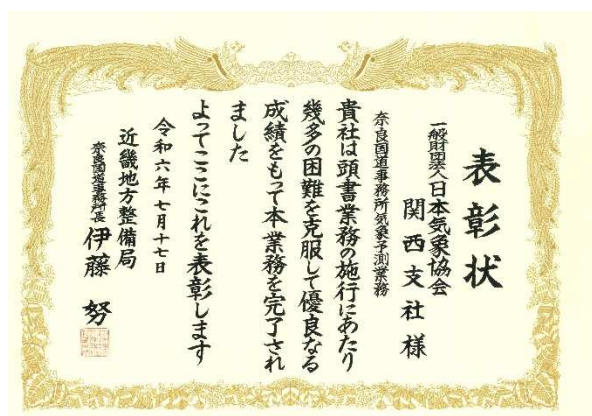 表彰状
一般財団法人日本気象協会
関西支社様
奈良国道事務所気象予測業務
貴社は頭書業務の施行にあたり
幾多の困難を克服して優良なる
成績をもって本業務を完了され
ました
よってここにこれを表彰します
令和六年七月十七日
近畿地方整備局
奈良国道事務所長 伊藤 努